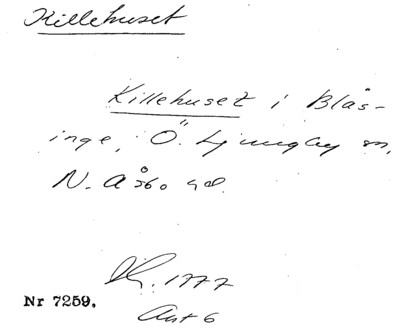 Killehuset
Killehuset i Blås-
inge, Ö. Ljungby sn,
N. Åsbo hd.
1777
Nr 7259.